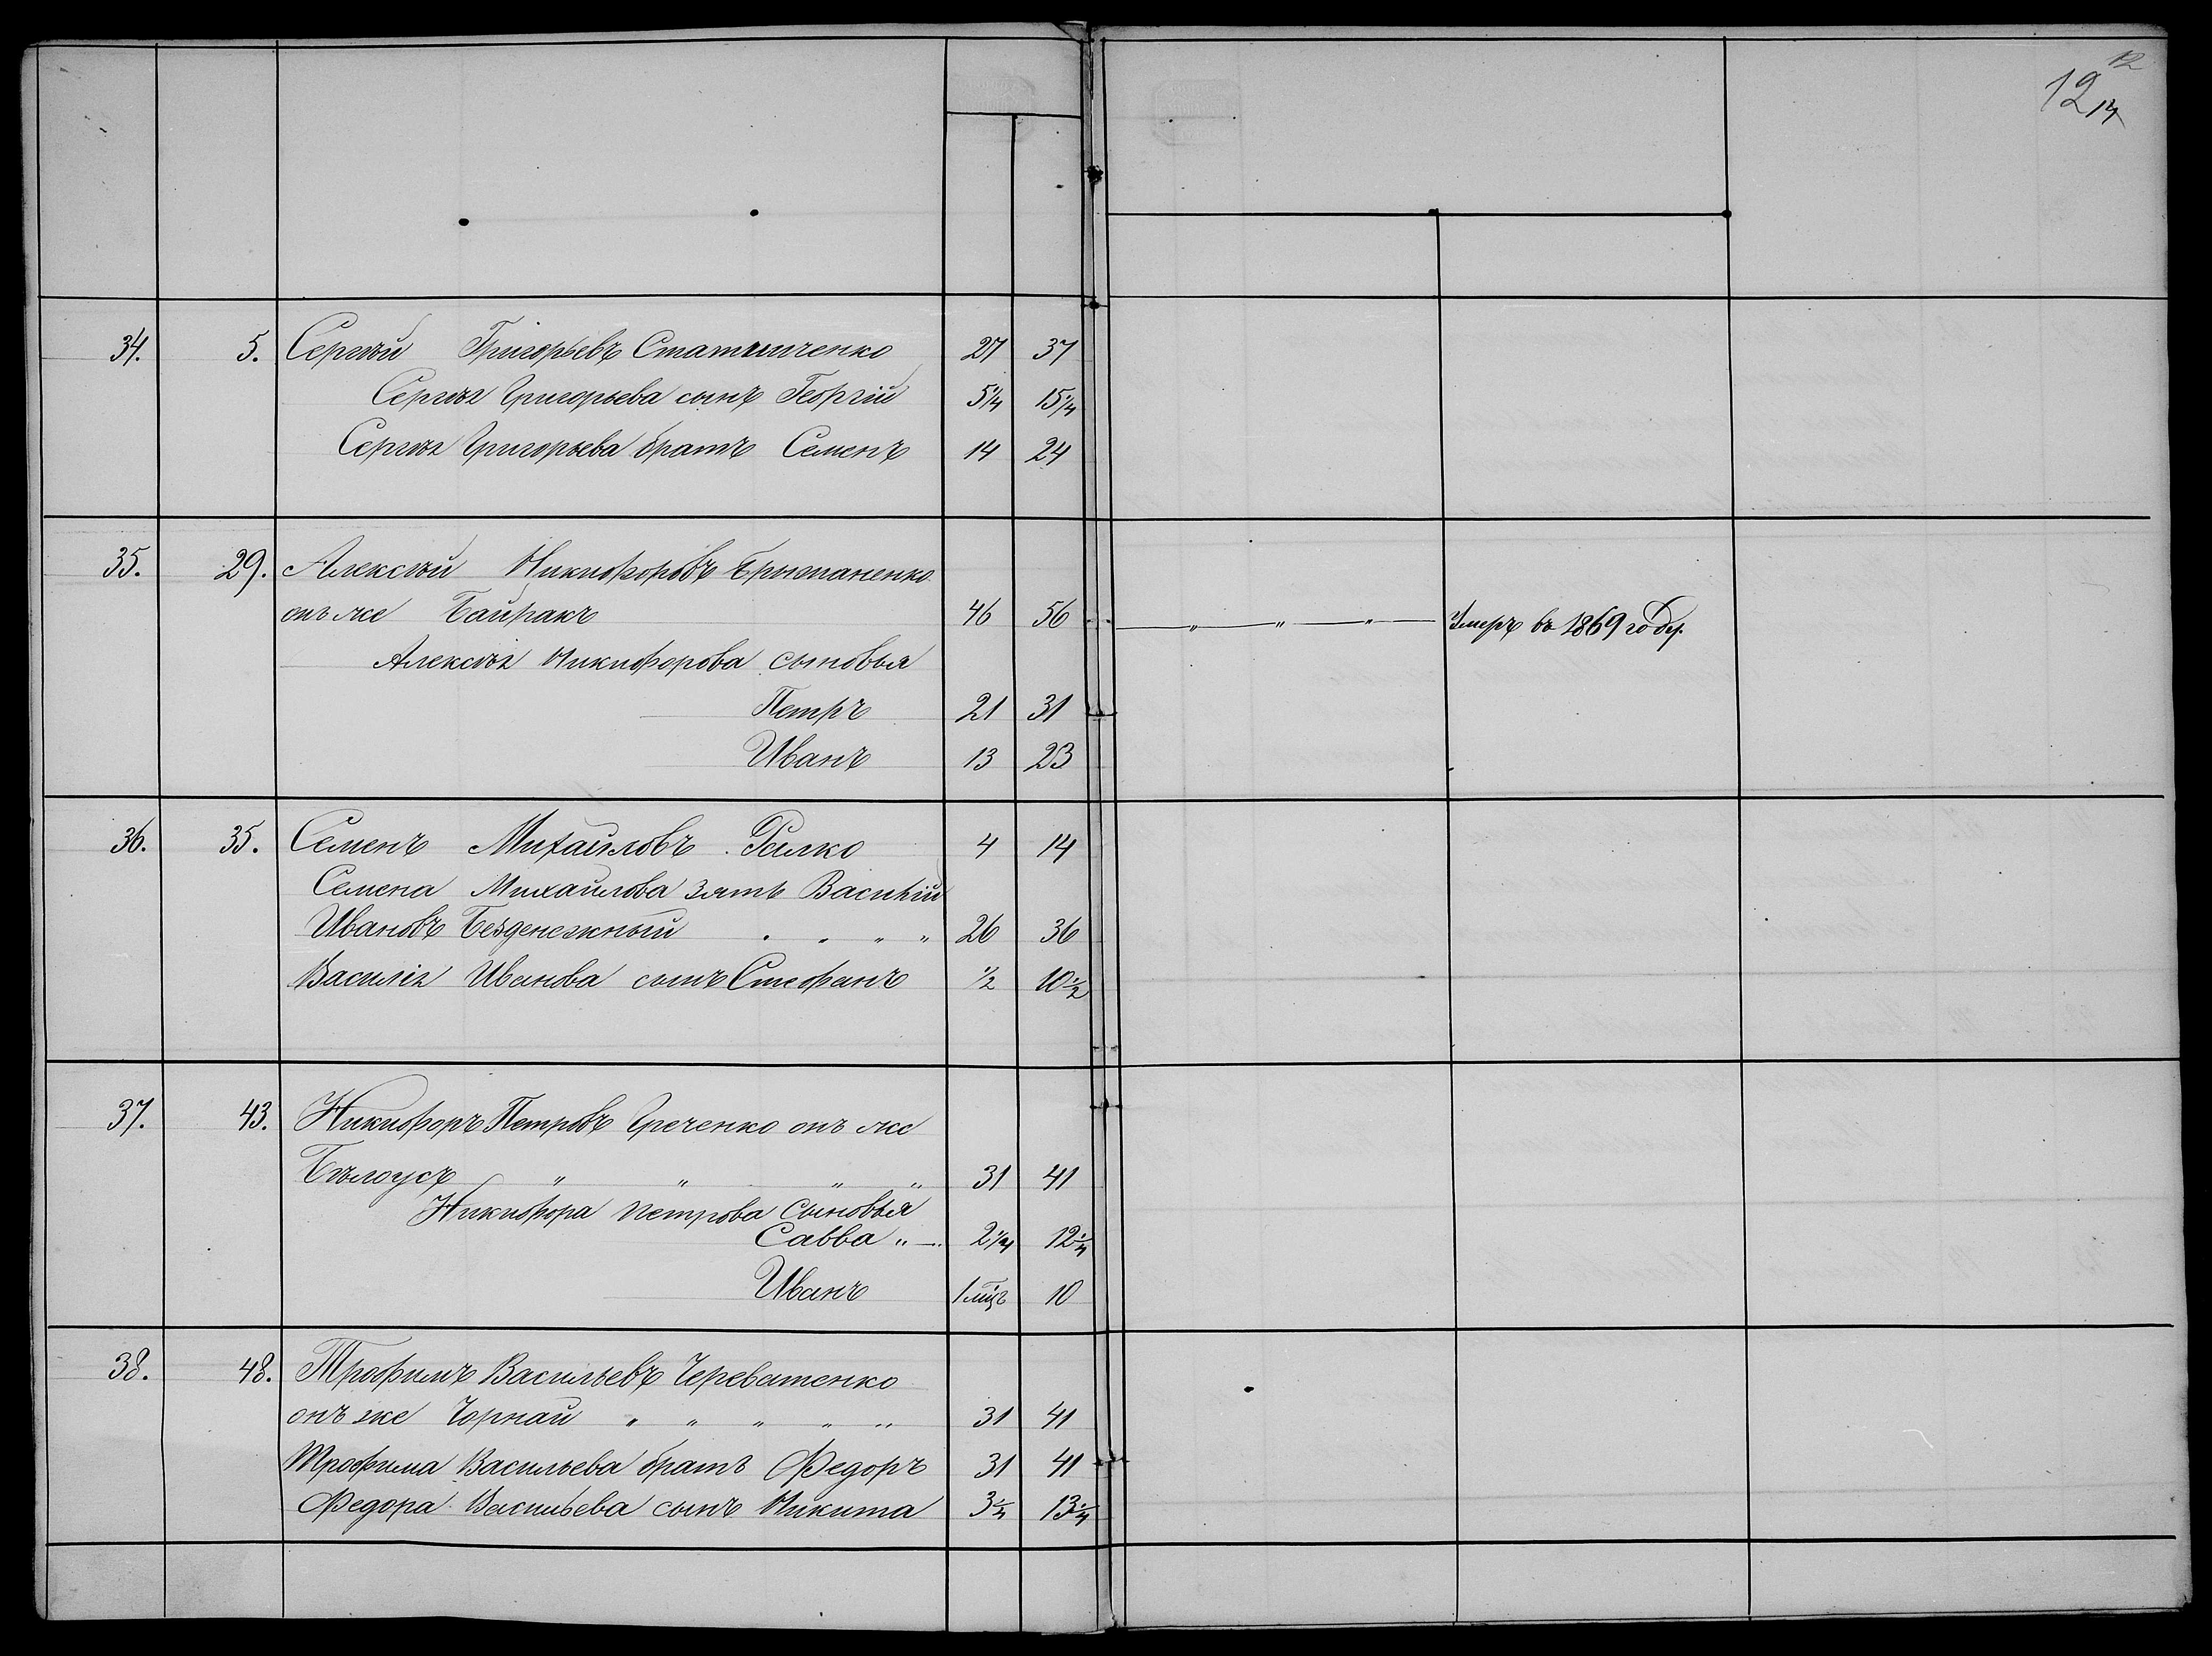 12
12 14
34. 5. Сергѣй Григорьевъ 27 37
Сергѣя Григорьева сынъ Георгій 5 1/4 15 1/4
Сергѣя Григорьева братъ Семенъ 14 24
35. 29. Алексѣй Никифоровъ
онъ же Байракъ 46 56 — " — " — " — Умеръ въ 1869 году.
Алексѣя Никифорова сыновья
Петръ 21 31
Иванъ 13 23
36. 35. Семенъ Михайловъ 4 14
Семена Михайлова зять Василій
Ивановъ Безденежный " " " " 26 36
Василія Иванова сынъ Стефанъ 1/2 10 1/2
37. 43. Никифоръ Петровъ Греченко онъ же
Бѣлоусъ " " " " 31 41
Никифора Петрова сыновья
Савва " — 2 1/4 12 1/4
Иванъ 1 мцъ 10
38. 48. Трофимъ Васильевъ Череватенко
онъ же Чорнай " " " " " 31 41
Трофима Васильева братъ Федоръ 31 41
Федора Васильева сынъ Никита 3 1/4 13 1/4